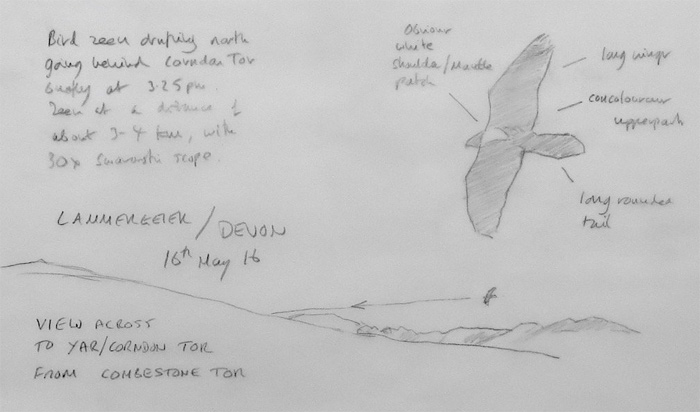 Bird seen drifting north
going behind Corndon Tor
at 3.25pm.
Seen at a distance of
about 3-4 km, with
30x Swarovski scope.
Obvious
white
shoulder/Mantle
patch
long wings
concolourous
upperparts
long rounded
tail
LAMMERGEIER / DEVON
16th May 16
VIEW ACROSS
TO YAR/CORNDON TOR
FROM COMBESTONE TOR